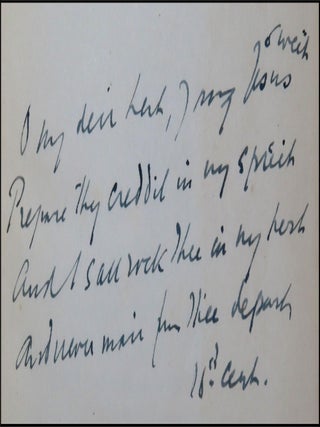 O my deir hert, Jesus sweit
Prepare thy creddil in my spreit
And I sall rock thee in my hert
And never mair thee depart
16th Cent.